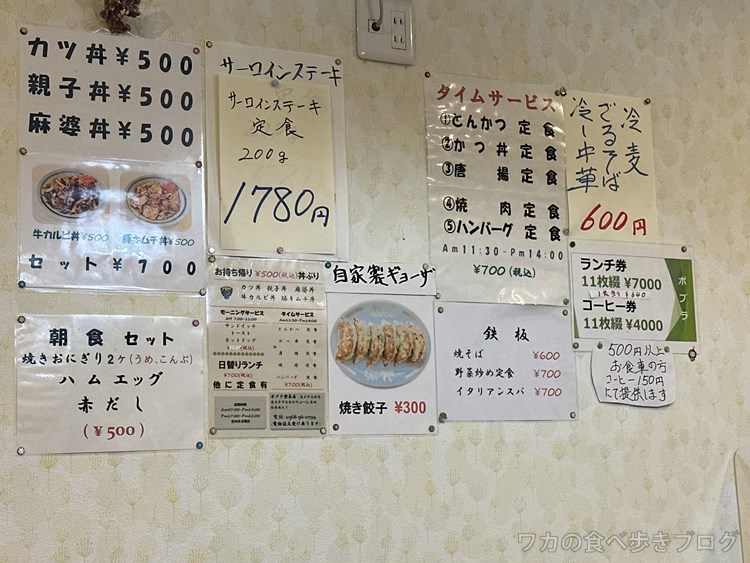 カツ丼¥500
親子丼¥500
麻婆丼¥500
牛カルビ丼¥500
豚キムチ丼¥500
セット¥700
朝食セット
焼きおにぎり2ケ(うめ、こんぶ)
ハムエッグ
赤だし
(¥500)
サーロインステーキ
サーロインステーキ
定食
200g
1780円
お持ち帰り ¥500(税込)丼ぶり
カツ丼 親子丼 麻婆丼
牛カルビ丼 豚キムチ丼
モーニングサービス
サンドイッチ
トースト
ホットドッグ
日替りランチ
¥700(税込)
他に定食有
タイムサービス
¥700(税込)
自家製ギョーザ
焼き餃子 ¥300
タイムサービス
①とんかつ定食
②かつ丼定食
③唐揚定食
④焼肉定食
⑤ハンバーグ定食
Am11:30-Pm14:00
¥700(税込)
鉄板
焼そば ¥600
野菜炒め定食 ¥700
イタリアンスパ ¥700
冷麦
ざるそば
冷し中華
600円
ランチ券
11枚綴 ¥7000
コーヒー券
11枚綴 ¥4000
ポプラ
500円以上
お食事の方
コーヒー150円
にて提供します
ワカの食べ歩きブログ